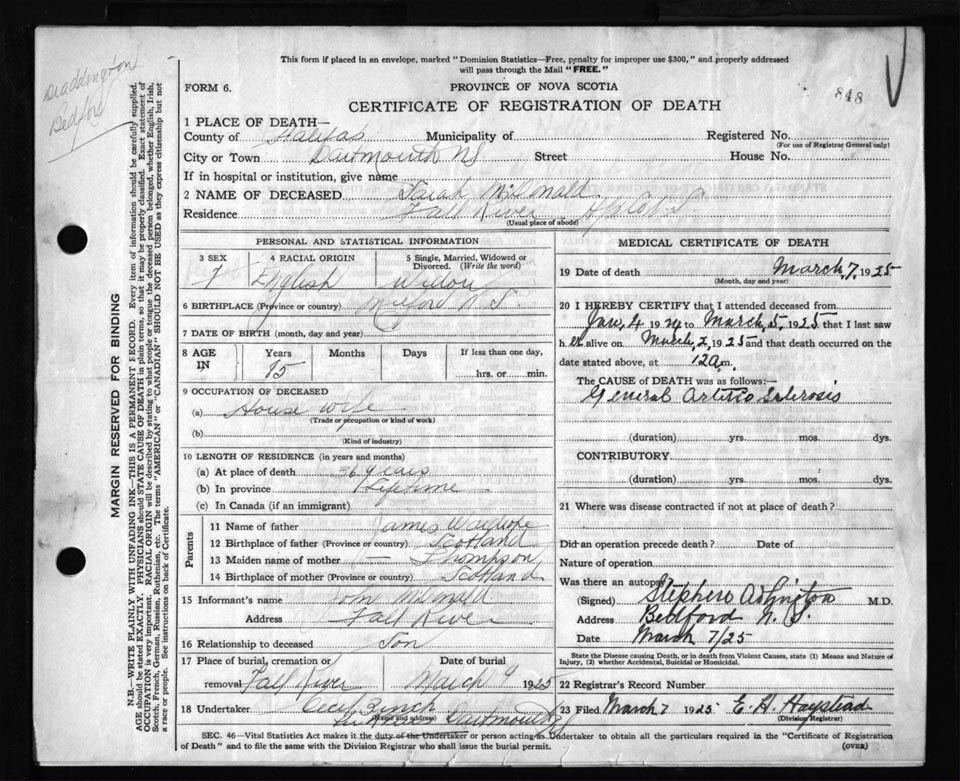 This form if placed in an envelope, marked "Dominion Statistics—Free, penalty for improper use $300," and properly addressed
will pass through the Mail "FREE."
Bedford
FORM 6.
PROVINCE OF NOVA SCOTIA
848
CERTIFICATE OF REGISTRATION OF DEATH
1 PLACE OF DEATH—
County of Halifax Municipality of Registered No.
(For use of Registrar General only)
City or Town Dartmouth NS Street House No.
If in hospital or institution, give name
2 NAME OF DECEASED Sarah McDonald
Residence Fall River Hfx Co N S
(Usual place of abode)
PERSONAL AND STATISTICAL INFORMATION
3 SEX 4 RACIAL ORIGIN 5 Single, Married, Widowed or Divorced. (Write the word)
F English Widow
6 BIRTHPLACE (Province or country) Milford N.S.
7 DATE OF BIRTH (month, day and year)
8 AGE IN Years Months Days If less than one day,
85 hrs. or min.
9 OCCUPATION OF DECEASED
(a) House wife
(Trade or occupation or kind of work)
(b)
(Kind of industry)
10 LENGTH OF RESIDENCE (in years and months)
(a) At place of death 36 years
(b) In province Lifetime
(c) In Canada (if an immigrant)
Parents
11 Name of father James Wardrope
12 Birthplace of father (Province or country) Scotland
13 Maiden name of mother — Thompson
14 Birthplace of mother (Province or country) Scotland
15 Informant's name John McDonald
Address Fall River
16 Relationship to deceased Son
17 Place of burial, cremation or Date of burial
removal Fall River March 9 1925
18 Undertaker Cecil Zinck
(Name and address) Dartmouth
MEDICAL CERTIFICATE OF DEATH
19 Date of death March, 7, 1925
(Month, day and year)
20 I HEREBY CERTIFY that I attended deceased from
Jan, 4 1924 to March, 5, 1925 that I last saw
her alive on March, 2, 1925 and that death occurred on the
date stated above, at 12 a m.
The CAUSE of DEATH was as follows:—
General Arterio Sclerosis
(duration) yrs. mos. dys.
CONTRIBUTORY
(duration) yrs. mos. dys.
21 Where was disease contracted if not at place of death?
Did an operation precede death? Date of
Nature of operation
Was there an autopsy
(Signed) Stephen M.D.
Address Bedford N. S.
Date March 7/25
State the Disease causing Death, or in death from Violent Causes, state (1) Means and Nature of
Injury, (2) whether Accidental, Suicidal or Homicidal.
22 Registrar's Record Number
23 Filed March 7 1925 E. H.
(Division Registrar)
SEC. 46—Vital Statistics Act makes it the duty of the Undertaker or person acting as Undertaker to obtain all the particulars required in the "Certificate of Registration
of Death" and to file the same with the Division Registrar who shall issue the burial permit.
(OVER)
MARGIN RESERVED FOR BINDING
N.B.—WRITE PLAINLY WITH UNFADING INK—THIS IS A PERMANENT RECORD. Every item of information should be carefully supplied.
AGE should be stated EXACTLY. PHYSICIANS should STATE CAUSE OF DEATH in plain terms, so that it may be properly classified. Exact statement of
OCCUPATION is very important. RACIAL ORIGIN will be described by stating to what people or tongue the deceased person belonged, whether English, Irish,
Scotch, French, German, Russian, Ruthenian, etc. The terms "AMERICAN" or "CANADIAN" SHOULD NOT BE USED as they express citizenship but not
a race or people. See instructions on back of Certificate.